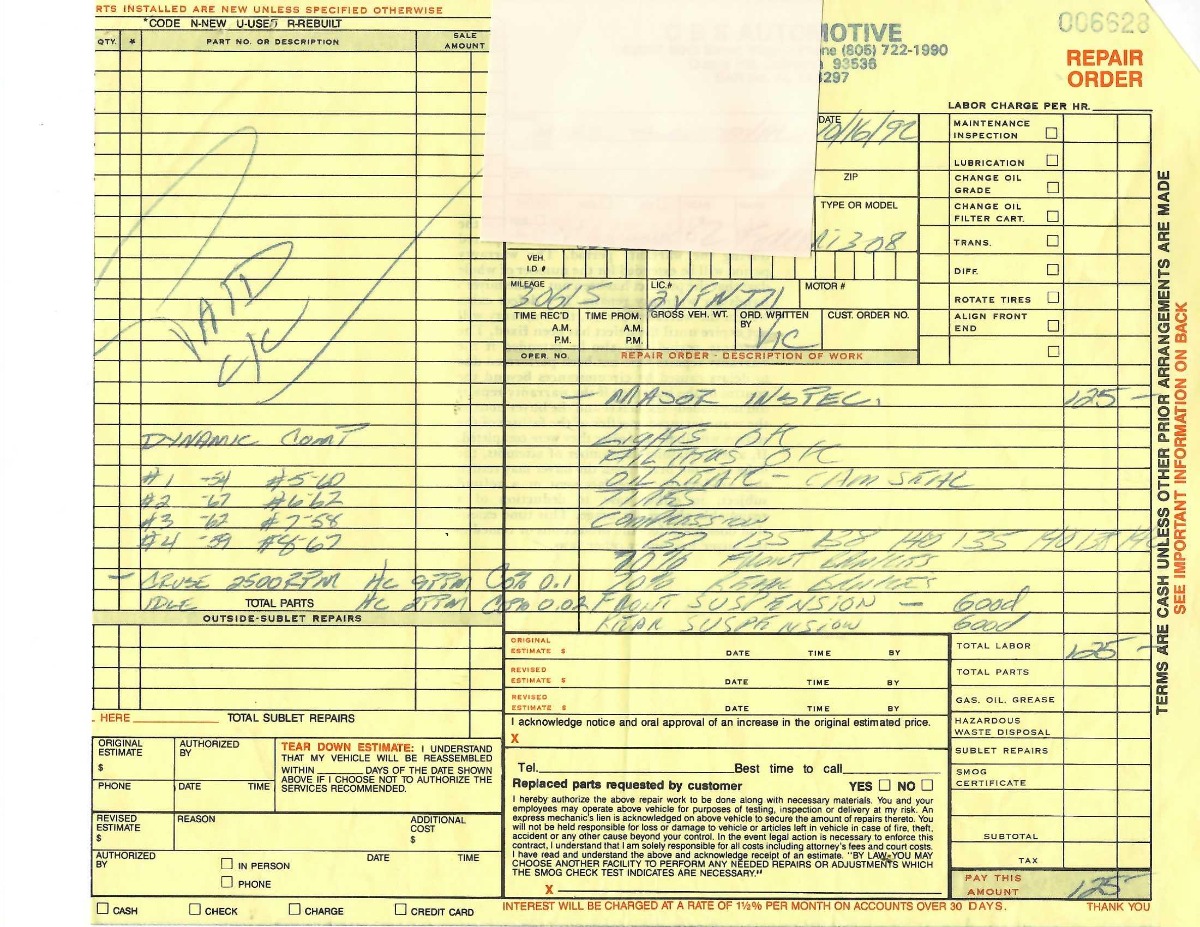 RTS INSTALLED ARE NEW UNLESS SPECIFIED OTHERWISE
*CODE N-NEW U-USED R-REBUILT
QTY. * PART NO. OR DESCRIPTION SALE AMOUNT
PAID
C/C
DYNAMIC COMP
#1 -54 #5-60
#2 -67 #6-62
#3 -62 #7-58
#4 -59 #8-67
— CRUSE 2500 RPM HC 9PPM CO% 0.1
IDLE HC 2PPM CO% 0.02
TOTAL PARTS
OUTSIDE-SUBLET REPAIRS
HERE TOTAL SUBLET REPAIRS
ORIGINAL ESTIMATE $
AUTHORIZED BY
PHONE DATE TIME
TEAR DOWN ESTIMATE: I UNDERSTAND
THAT MY VEHICLE WILL BE REASSEMBLED
WITHIN ______ DAYS OF THE DATE SHOWN
ABOVE IF I CHOOSE NOT TO AUTHORIZE THE
SERVICES RECOMMENDED.
REVISED ESTIMATE $
REASON
ADDITIONAL COST $
AUTHORIZED BY
IN PERSON DATE TIME
PHONE
CASH CHECK CHARGE CREDIT CARD
AUTOMOTIVE
ne (805) 722-1990
93536
297
006628
REPAIR
ORDER
LABOR CHARGE PER HR.
DATE
10/16/92
ZIP
TYPE OR MODEL
308
VEH. I.D. #
MILEAGE
30615
LIC.#
MOTOR #
TIME REC'D A.M. P.M.
TIME PROM. A.M. P.M.
GROSS VEH. WT.
ORD. WRITTEN BY
VIC
CUST. ORDER NO.
OPER. NO. REPAIR ORDER - DESCRIPTION OF WORK
MAINTENANCE INSPECTION
LUBRICATION
CHANGE OIL GRADE
CHANGE OIL FILTER CART.
TRANS.
DIFF.
ROTATE TIRES
ALIGN FRONT END
— MAJOR INSPEC. 125 —
LIGHTS OK
OK
OIL LEAK - CAM SEAL
TIRES
COMPRESSION
137 135 138 140 135 140
70% FRONT
70% REAR
FRONT SUSPENSION — Good
REAR SUSPENSION Good
ORIGINAL ESTIMATE $ DATE TIME BY
REVISED ESTIMATE $ DATE TIME BY
REVISED ESTIMATE $ DATE TIME BY
I acknowledge notice and oral approval of an increase in the original estimated price.
X
Tel. Best time to call
Replaced parts requested by customer YES NO
I hereby authorize the above repair work to be done along with necessary materials. You and your
employees may operate above vehicle for purposes of testing, inspection or delivery at my risk. An
express mechanic's lien is acknowledged on above vehicle to secure the amount of repairs thereto. You
will not be held responsible for loss or damage to vehicle or articles left in vehicle in case of fire, theft,
accident or any other cause beyond your control. In the event legal action is necessary to enforce this
contract, I understand that I am solely responsible for all costs including attorney's fees and court costs.
I have read and understand the above and acknowledge receipt of an estimate. "BY LAW-YOU MAY
CHOOSE ANOTHER FACILITY TO PERFORM ANY NEEDED REPAIRS OR ADJUSTMENTS WHICH
THE SMOG CHECK TEST INDICATES ARE NECESSARY."
X
INTEREST WILL BE CHARGED AT A RATE OF 1½% PER MONTH ON ACCOUNTS OVER 30 DAYS.
TOTAL LABOR 125 —
TOTAL PARTS
GAS. OIL. GREASE
HAZARDOUS WASTE DISPOSAL
SUBLET REPAIRS
SMOG CERTIFICATE
SUBTOTAL
TAX
PAY THIS AMOUNT 125 —
THANK YOU
TERMS ARE CASH UNLESS OTHER PRIOR ARRANGEMENTS ARE MADE
SEE IMPORTANT INFORMATION ON BACK